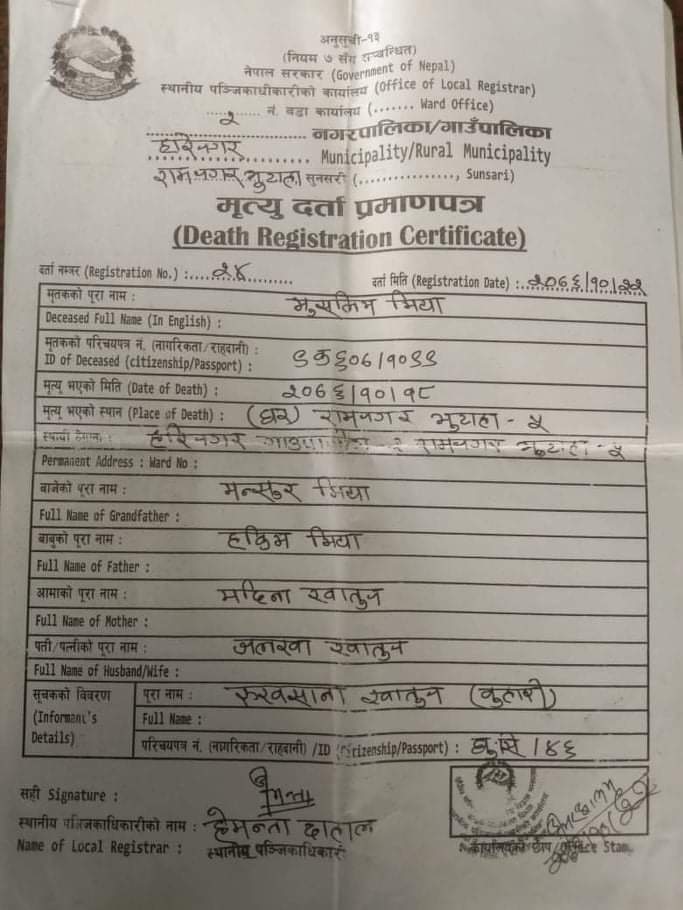 अनुसूची-१३
(नियम ७ सँग सम्बन्धित)
नेपाल सरकार (Government of Nepal)
स्थानीय पञ्जिकाधिकारीको कार्यालय (Office of Local Registrar)
२ नं. वडा कार्यालय (....... Ward Office)
हरिनगर नगरपालिका/गाउँपालिका
Municipality/Rural Municipality
रामनगर भुटाहा सुनसरी (..............., Sunsari)
मृत्यु दर्ता प्रमाणपत्र
(Death Registration Certificate)
दर्ता नम्बर (Registration No.) : २४ दर्ता मिति (Registration Date) : २०७६/१०/२२
मृतकको पूरा नाम : मुसमिम मिया
Deceased Full Name (In English) :
मृतकको परिचयपत्र नं. (नागरिकता/राहदानी) :
ID of Deceased (citizenship/Passport) :
मृत्यु भएको मिति (Date of Death) : २०७६/१०/१८
मृत्यु भएको स्थान (Place of Death) : (घर) रामनगर भुटाहा - ५
स्थायी ठेगाना : हरिनगर गाउँपालिका २ रामनगर भुटाहा - ५
Permanent Address : Ward No :
बाजेको पूरा नाम : मन्सुर मिया
Full Name of Grandfather :
बाबुको पूरा नाम : हकिम मिया
Full Name of Father :
आमाको पूरा नाम : मदिना खातुन
Full Name of Mother :
पती/पत्नीको पूरा नाम : खातुन
Full Name of Husband/Wife :
सूचकको विवरण पूरा नाम : रुखसाना खातुन (बुहारी)
(Informant's Full Name :
Details) परिचयपत्र नं. (नागरिकता/राहदानी) /ID (Citizenship/Passport) : /४६
सही Signature :
स्थानीय पञ्जिकाधिकारीको नाम : हेमन्ता दाहाल
Name of Local Registrar : स्थानीय पञ्जिकाधिकारी
कार्यालयको छाप /Office Stam